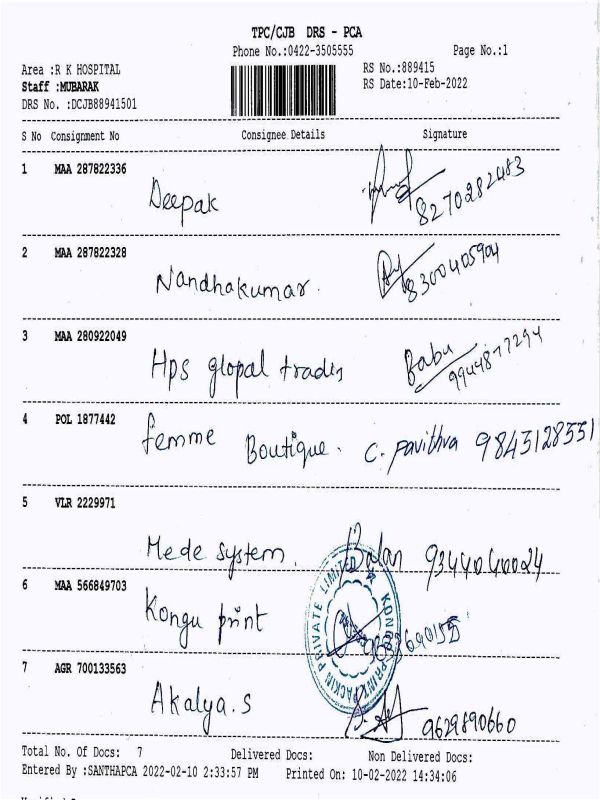 TPC/CJB DRS - PCA
Phone No.:0422-3505555 Page No.:1
Area :R K HOSPITAL RS No.:889415
Staff :MUBARAK RS Date:10-Feb-2022
DRS No. :DCJB88941501
S No Consignment No Consignee Details Signature
1 MAA 287822336
Deepak 8270282483
2 MAA 287822328
Nandhakumar. 8300405904
3 MAA 280922049
Hps glopal tradin Babu
9944877294
4 POL 1877442
femme Boutique. C. Pavithra 9843128551
5 VLR 2229971
Mede system. Balan 9344040024
6 MAA 566849703
Kongu print
PRIVATE LIMITED
7 AGR 700133563
Akalya.S 9629890660
Total No. Of Docs: 7 Delivered Docs: Non Delivered Docs:
Entered By :SANTHAPCA 2022-02-10 2:33:57 PM Printed On: 10-02-2022 14:34:06